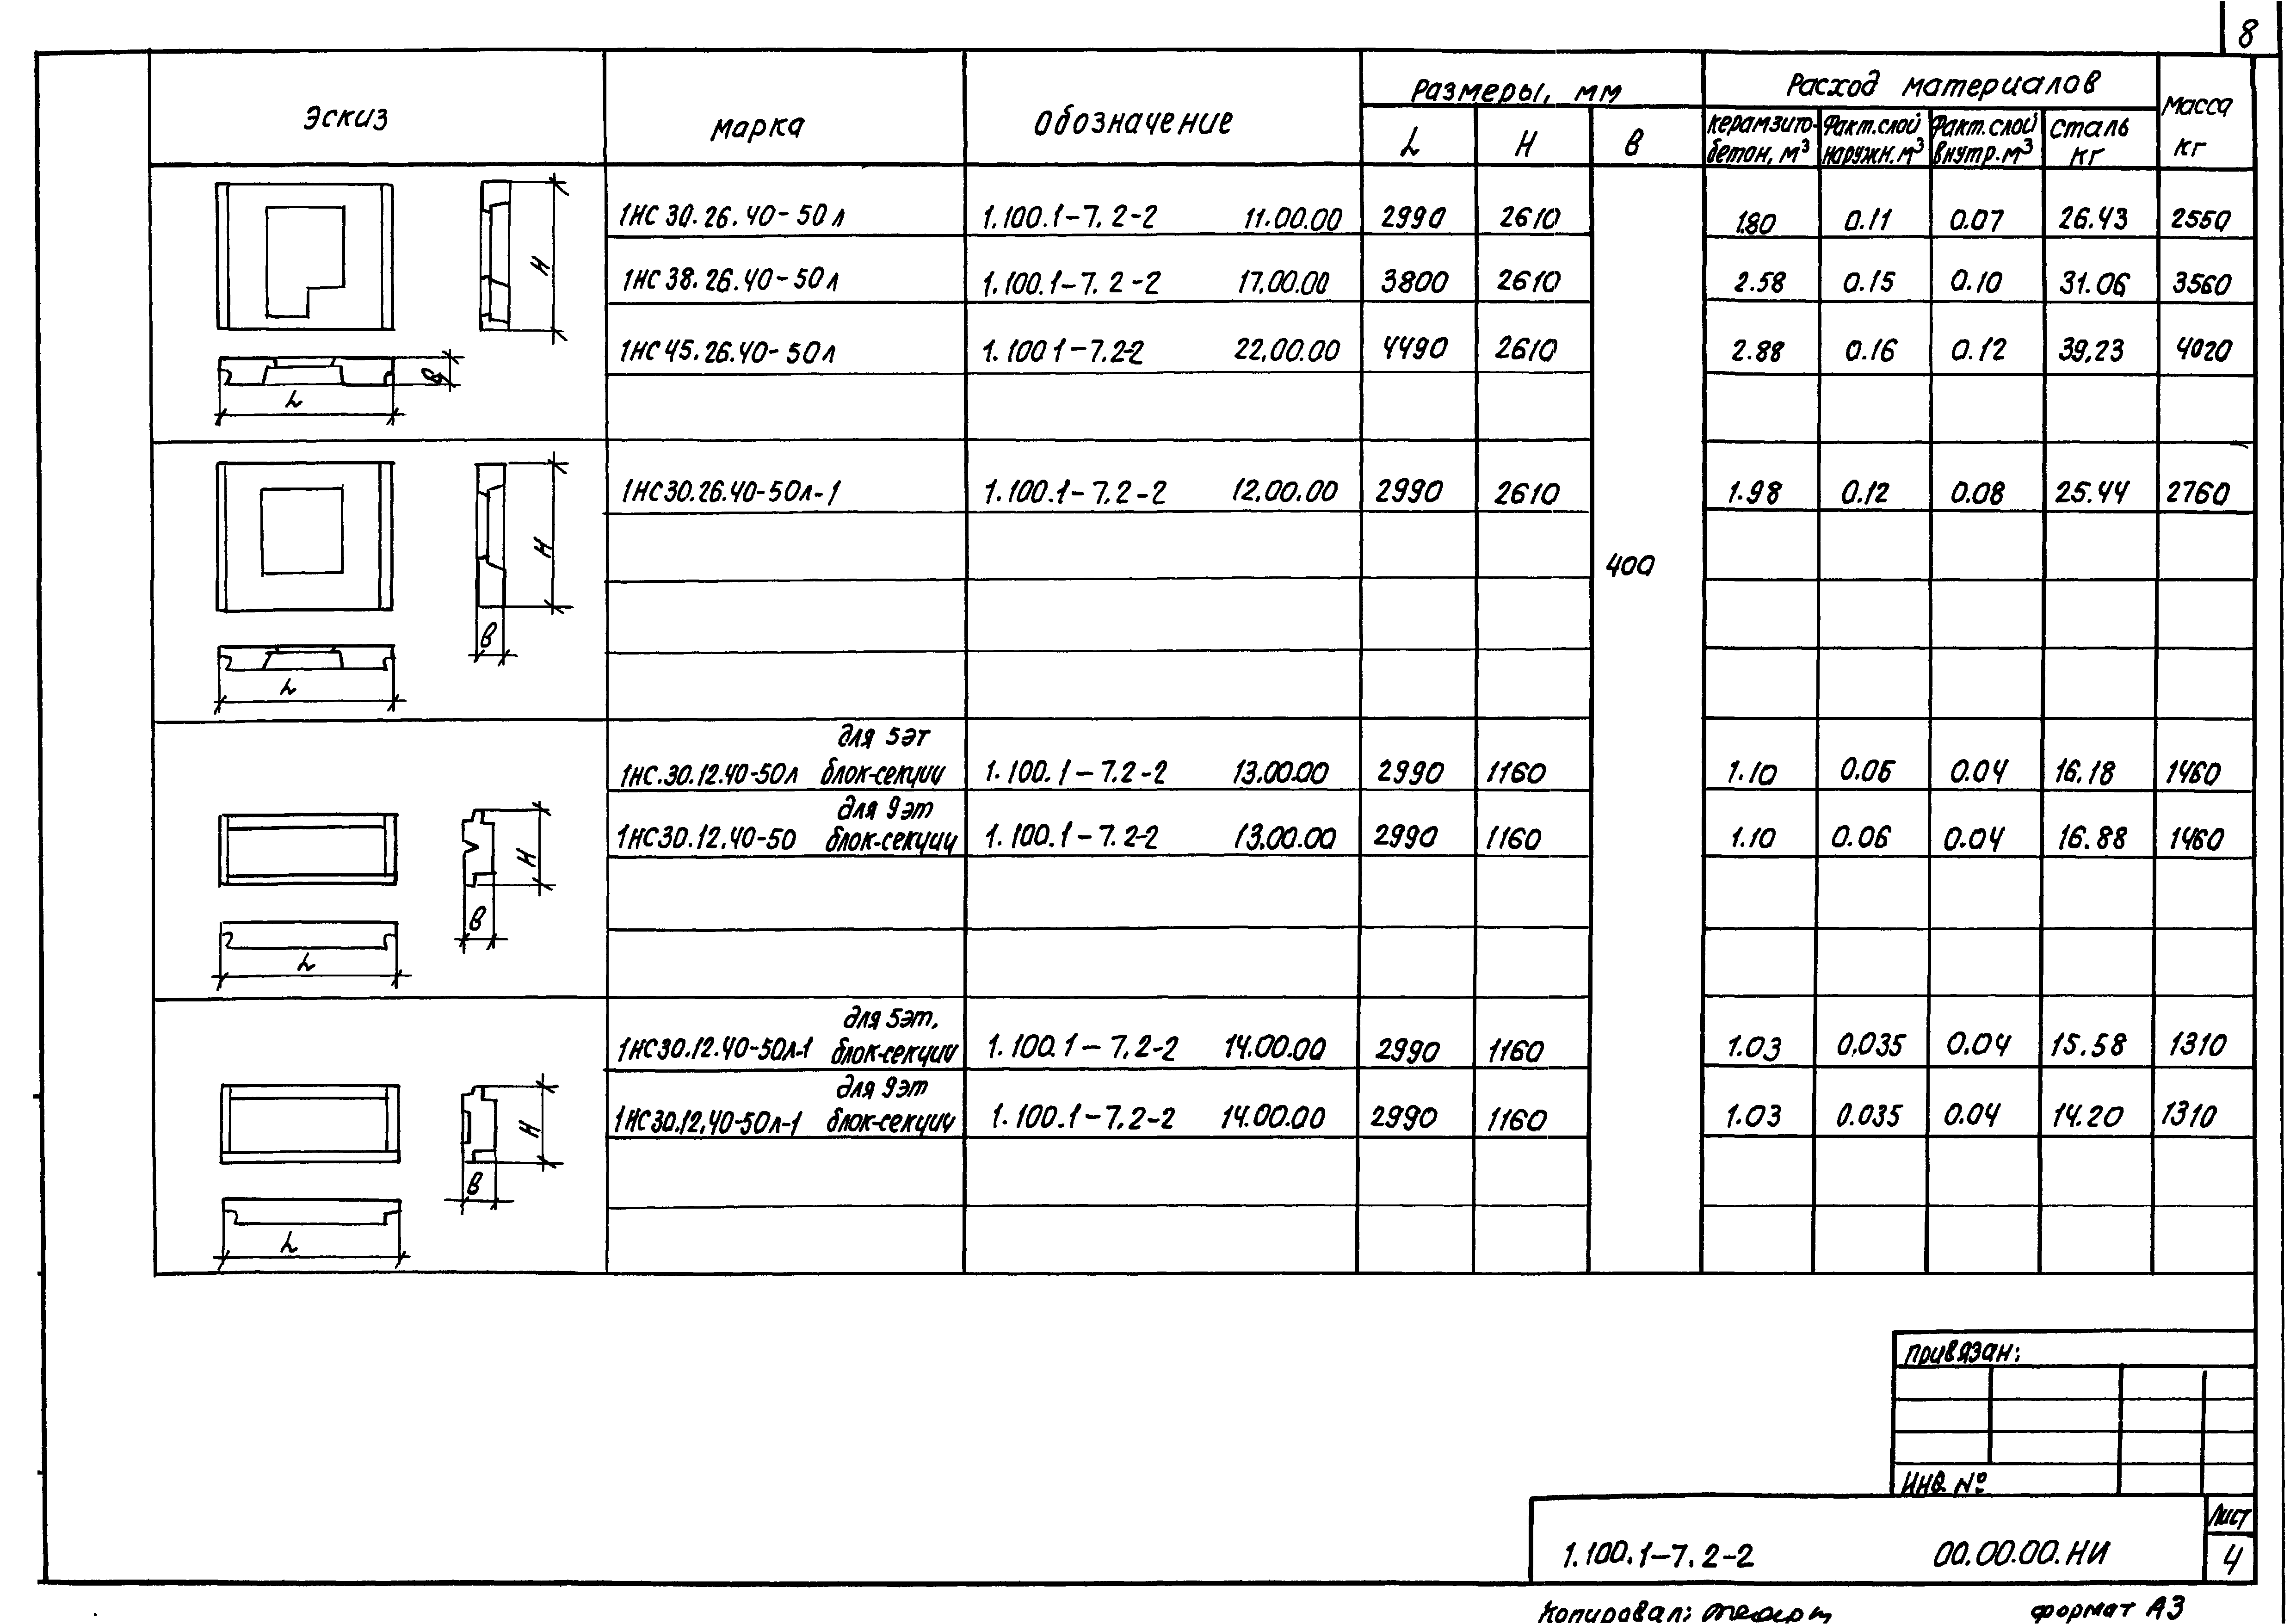 8
Эскиз Марка Обозначение Размеры, мм Расход материалов Масса кг
L H B Керамзито-бетон, м³ Факт. слой наружн. м³ Факт. слой внутр. м³ Сталь кг
1НС 30.26.40-50л 1.100.1-7.2-2 11.00.00 2990 2610 1.80 0.11 0.07 26.43 2550
H
1НС 38.26.40-50л 1.100.1-7.2-2 17.00.00 3800 2610 2.58 0.15 0.10 31.06 3560
1НС 45.26.40-50л 1.100 1-7.2-2 22.00.00 4490 2610 2.88 0.16 0.12 39,23 4020
B
L
1НС30.26.40-50л-1 1.100.1-7.2-2 12.00.00 2990 2610 1.98 0.12 0.08 25.44 2760
H
400
B
L
для 5эт
1НС.30.12.40-50л блок-секции 1.100.1-7.2-2 13.00.00 2990 1160 1.10 0.06 0.04 16.18 1460
для 9эт
1НС30.12.40-50 блок-секции 1.100.1-7.2-2 13.00.00 2990 1160 1.10 0.06 0.04 16.88 1460
H
B
L
для 5эт.
1НС30.12.40-50л-1 блок-секции 1.100.1-7.2-2 14.00.00 2990 1160 1.03 0.035 0.04 15.58 1310
для 9эт
1НС30.12.40-50л-1 блок-секции 1.100.1-7.2-2 14.00.00 2990 1160 1.03 0.035 0.04 14.20 1310
H
B
L
Привязан:
Инв №
1.100.1-7.2-2 00.00.00.НИ Лист
4
Копировал: формат А3